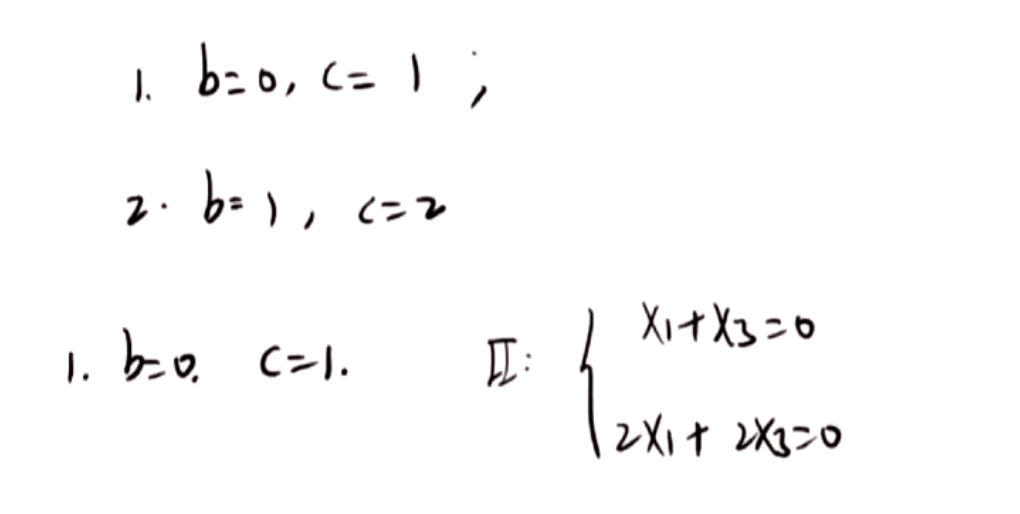 1. b=0, c=1;
2. b=1, c=2
1. b=0. c=1. II: { x₁+x₃=0
2x₁+2x₃=0